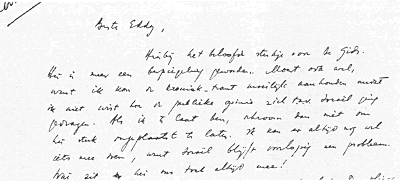 Beste Eddy,
Hierbij het beloofde stukje voor de Gids.
Het is meer een bespiegeling geworden. Moest ook wel,
want ik kon de kroniek-trant moeilijk aanhouden omdat
ik niet wist hoe de publieke opinie zich t.a.v. Israël ging
gedragen. Als ik te laat ben, schroom dan niet om
het stuk ongeplaatst te laten. Ik kan er altijd nog wel
iets mee doen, want Israël blijft voorlopig een probleem.
zit er bij ons toch altijd mee!